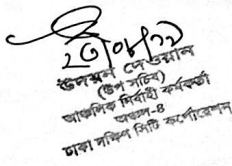 ২৩/০৮/২২
উপমন দেওয়ান
(উপ সচিব)
আঞ্চলিক নির্বাহী কর্মকর্তা
অঞ্চল-৪
ঢাকা দক্ষিণ সিটি কর্পোরেশন